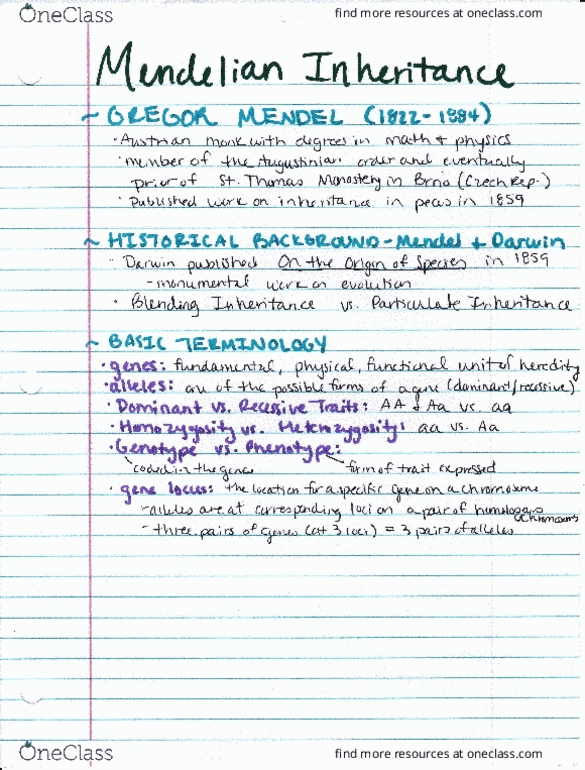 OneClass
find more resources at oneclass.com
Mendelian Inheritance
~ GREGOR MENDEL (1822-1884)
· Austrian monk with degrees in math + physics
· member of the Augustinian order and eventually
prior of St. Thomas Monastery in Brno (Czech Rep.)
· Published work on inheritance in peas in 1859
~ HISTORICAL BACKGROUND - Mendel + Darwin
· Darwin published On the Origin of Species in 1859
- monumental work on evolution
· Blending Inheritance vs. Particulate Inheritance
~ BASIC TERMINOLOGY
· genes: fundamental, physical, functional unit of heredity
· alleles: any of the possible forms of a gene (dominant/recessive)
· Dominant vs. Recessive Traits: AA + Aa vs. aa
· Homozygosity vs. Heterozygosity: aa vs. Aa
· Genotype vs. Phenotype:
coded in the genes form of trait expressed
· gene locus: the location for a specific gene on a chromosome
- alleles are at corresponding loci on a pair of homologous
chromosomes
- three pairs of genes (at 3 loci) = 3 pairs of alleles
OneClass
find more resources at oneclass.com